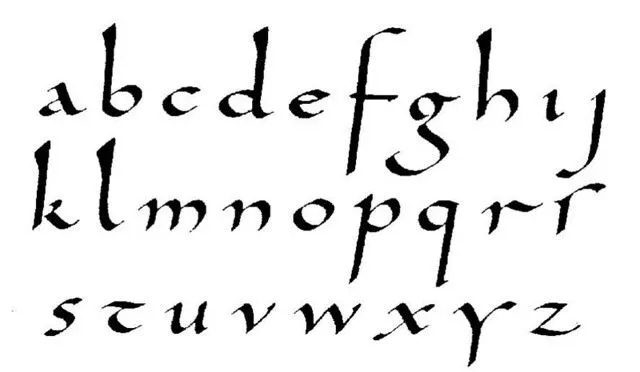 a b c d e f g h ı j
k l m n o p q r ſ
s t u v w x y z